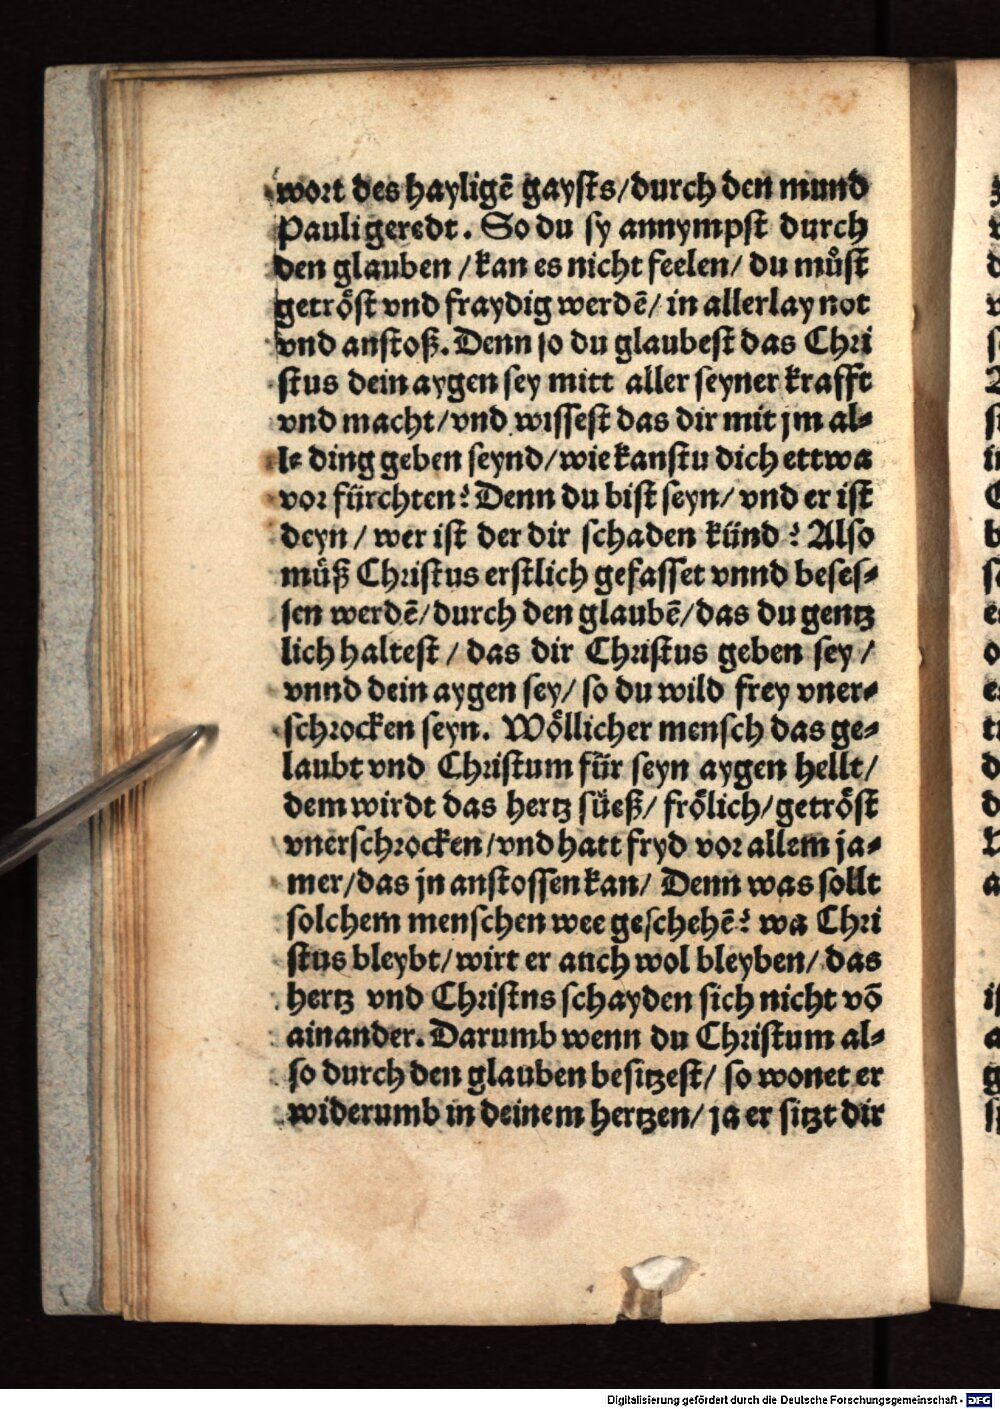 wort des hayligē gaysts/durch den mund
Pauli geredt. So du sy annympst durch
den glauben /kan es nicht feelen/ du můst
getröst vnd fraydig werdē/ in allerlay not
vnd anstoß. Denn so du glaubest das Chri
stus dein aygen sey mitt aller seyner krafft
vnd macht/vnd wissest das dir mit jm al⸗
le ding geben seynd/wie kanstu dich ettwa
vor fürchten? Denn du bist seyn/ vnd er ist
deyn / wer ist der dir schaden künd? Also
můß Christus erstlich gefasset vnnd beses⸗
sen werdē/durch den glaubē/das du gentz
lich haltest / das dir Christus geben sey /
vnnd dein aygen sey/ so du wild frey vner⸗
schrocken seyn. Wöllicher mensch das ge⸗
laubt vnd Christum für seyn aygen hellt/
dem wirdt das hertz süeß/ frölich/getröst
vnerschrocken/vnd hatt fryd vor allem ja⸗
mer/das jn anstossen kan/ Denn was sollt
solchem menschen wee geschehē? wa Chri
stus bleybt/wirt er auch wol bleyben/ das
hertz vnd Christns schayden sich nicht vō
ainander. Darumb wenn du Christum al⸗
so durch den glauben besitzest/ so wonet er
widerumb in deinem hertzen/ ja er sitzt dir
Digitalisierung gefördert durch die Deutsche Forschungsgemeinschaft - DFG